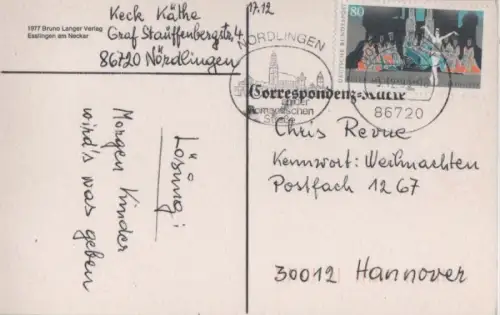 1977 Bruno Langer Verlag
Esslingen am Neckar
Keck Käthe
Graf Stauffenbergstr. 4
86720 Nördlingen
Lösung:
Morgen Kinder
wird's was geben
17.12
NÖRDLINGEN
an der
Romantischen
Straße
80
DEUTSCHE BUNDESPOST
86720
Correspondenz-Karte
Chris Revue
Kennwort: Weihnachten
Postfach 1267
30012 Hannover